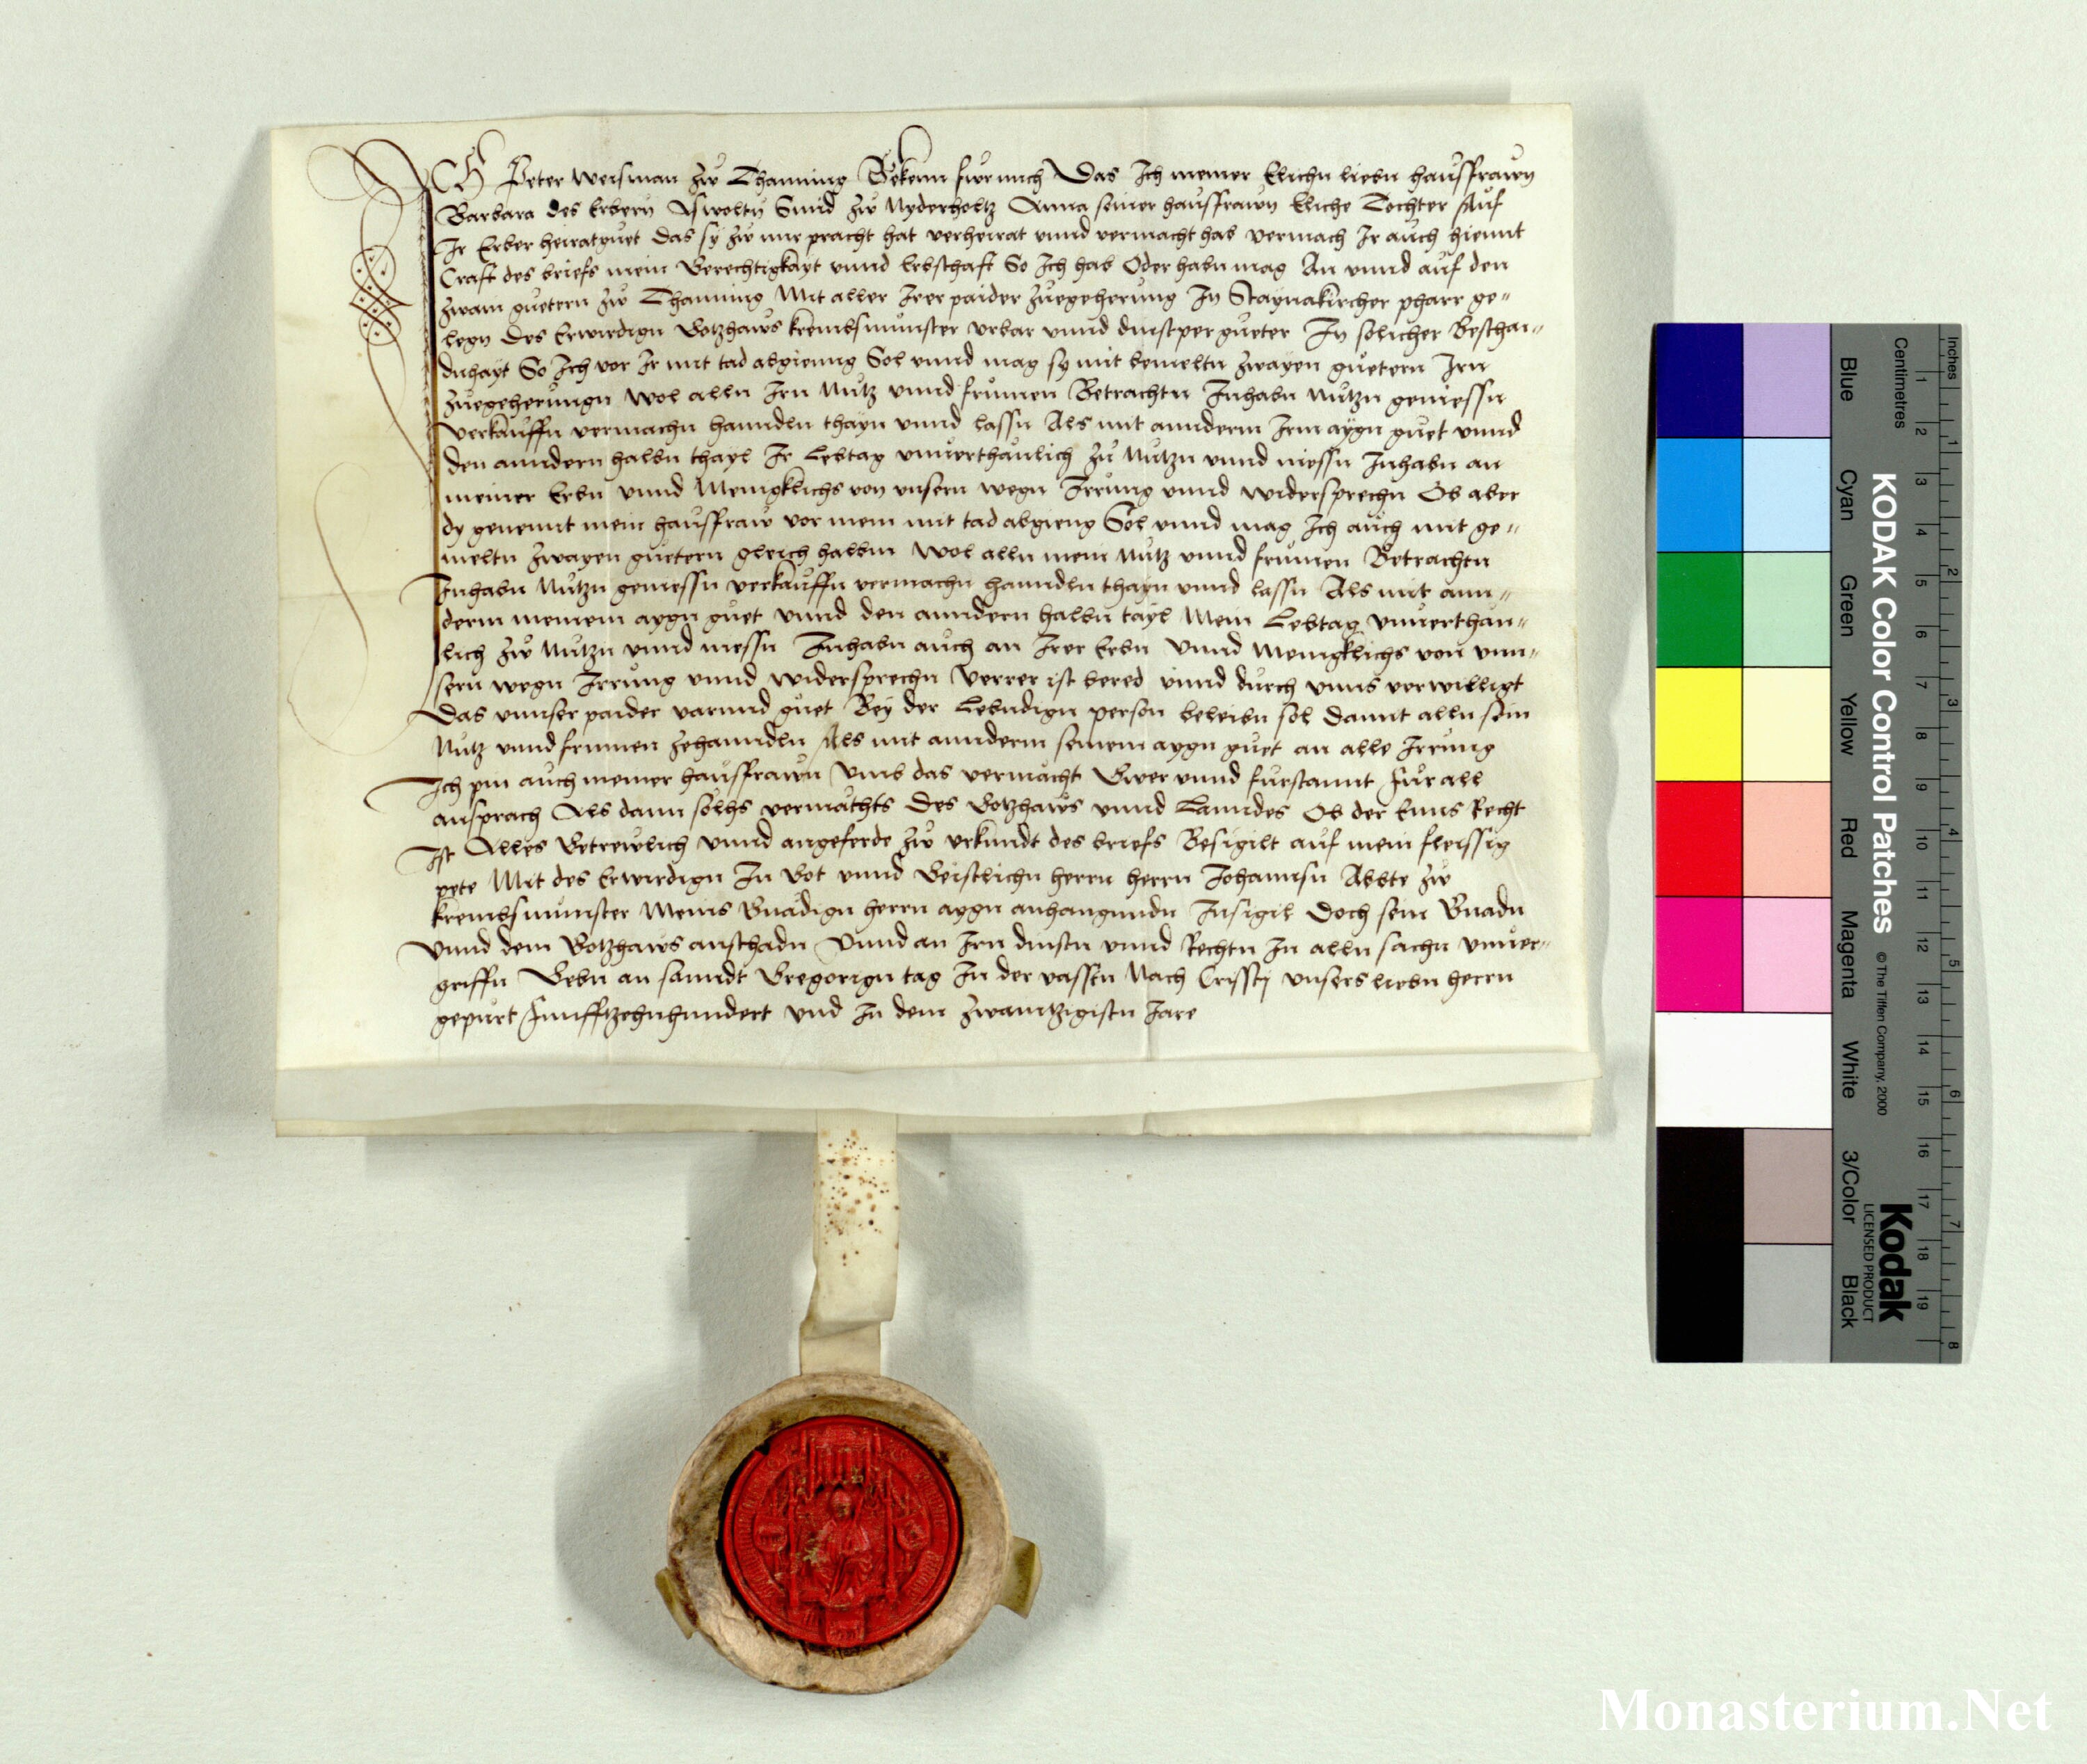 ICH Peter Weisman zw Thanning Bekenn fur mich Das Ich meiner Elichn liebn hausffrawn
Barbara des Erbern Aswoltn Smid zw Nyderholtz Anna seiner hausffrawn Eliche Tochter Auf
Ir Erber heiratguet das sy zw mir pracht hat verheirat vnnd vermacht hab vermach Ir auch hiemit
Crafft des briefs mein Gerechtigkayt vnnd Erbschafft So Ich hab Oder habn mag An vnnd auf den
zwain guetern zw Thanning Mit aller Irer paider zuegeherung In Staynakircher pharr ge-
legn des Erwirdign Gotzhaws Krembsmunster vrbar vnnd dinstper gueter In solicher Beschai-
dnhayt So Ich vor Ir mit tad abgieng Sol vnnd mag sy mit bemeltn zwayen guetern Irn
zuegeherungn Wol alln Irn Nutz vnnd frumen Betrachtn Inhabn Nutzn geniessn
verkauffn vermachn hanndln thayn vnnd lassn Als mit annderm Irm aygn guet vnnd
den anndern halbn thayl Ir Lebtag vnuerthaulich zu Nutzn vnnd niessn Inhabn an
meiner Erbn vnnd Menigklichs von vnsern wegn Irrung vnnd widersprechn Ob aber
dy genennt mein hausffraw vor mein mit tad abgieng Sol vnnd mag Ich auch mit ge-
meltn zwayen guetern gleich halbm Wol alln mein Nutz vnnd frumen Betrachtn
Inhabn Nutzn geniessn verkauffn vermachn hanndln thayn vnnd lassn Als mit ann-
derm meinem aygn guet vnnd den anndern halbn tayl Mein Lebtag vnuerthau-
lich zw Nutzn vnnd niessn Inhabn auch an Irer Erbn Vnnd Menigklichs von vnn-
sern wegn Irrung vnnd widersprechn Verrer ist bered vnnd durch vnns verwilligt
Das vnnser paider varund guet Bey der Lebndign person beleibn sol Damit alln sein
Nutz vnnd frumen zehanndln Als mit annderm seinem aygn guet an alle Irrung
Ich pin auch meiner hausffrawn Vmb das vermacht Gwer vnnd furstannt fur all
ansprach Als dann solhs vermachts des Gotzhaws vnnd Lanndes Ob der Enns Recht
Ist Alles Getrewlich vnnd angeferde zw vrkundt des briefs Besigilt auf mein fleissig
pete Mit des Erwirdign In Got vnnd Geistlichn herrn herrn Johannsn Abbte zw
Krembsmunster Meins Gnadign herrn aygn anhangundn Insigil Doch sein Gnadn
Vnnd dem Gotzhaws anschadn Vnnd an Irn dinstn vnnd Rechtn In alln sachn vnuer-
griffn Gebn an sanndt Gregorign tag In der vasstn Nach Crissty vnsers liebn herrn
gepurt funfftzehnhundert vnd In dem zwaintzigistn Jare
Inches
Centimetres
KODAK Color Control Patches © The Tiffen Company, 2000
Kodak
LICENSED PRODUCT
Blue Cyan Green Yellow Red Magenta White 3/Color Black
1 2 3 4 5 6 7 8 9 10 11 12 13 14 15 16 17 18 19
1 2 3 4 5 6 7 8
Monasterium.Net